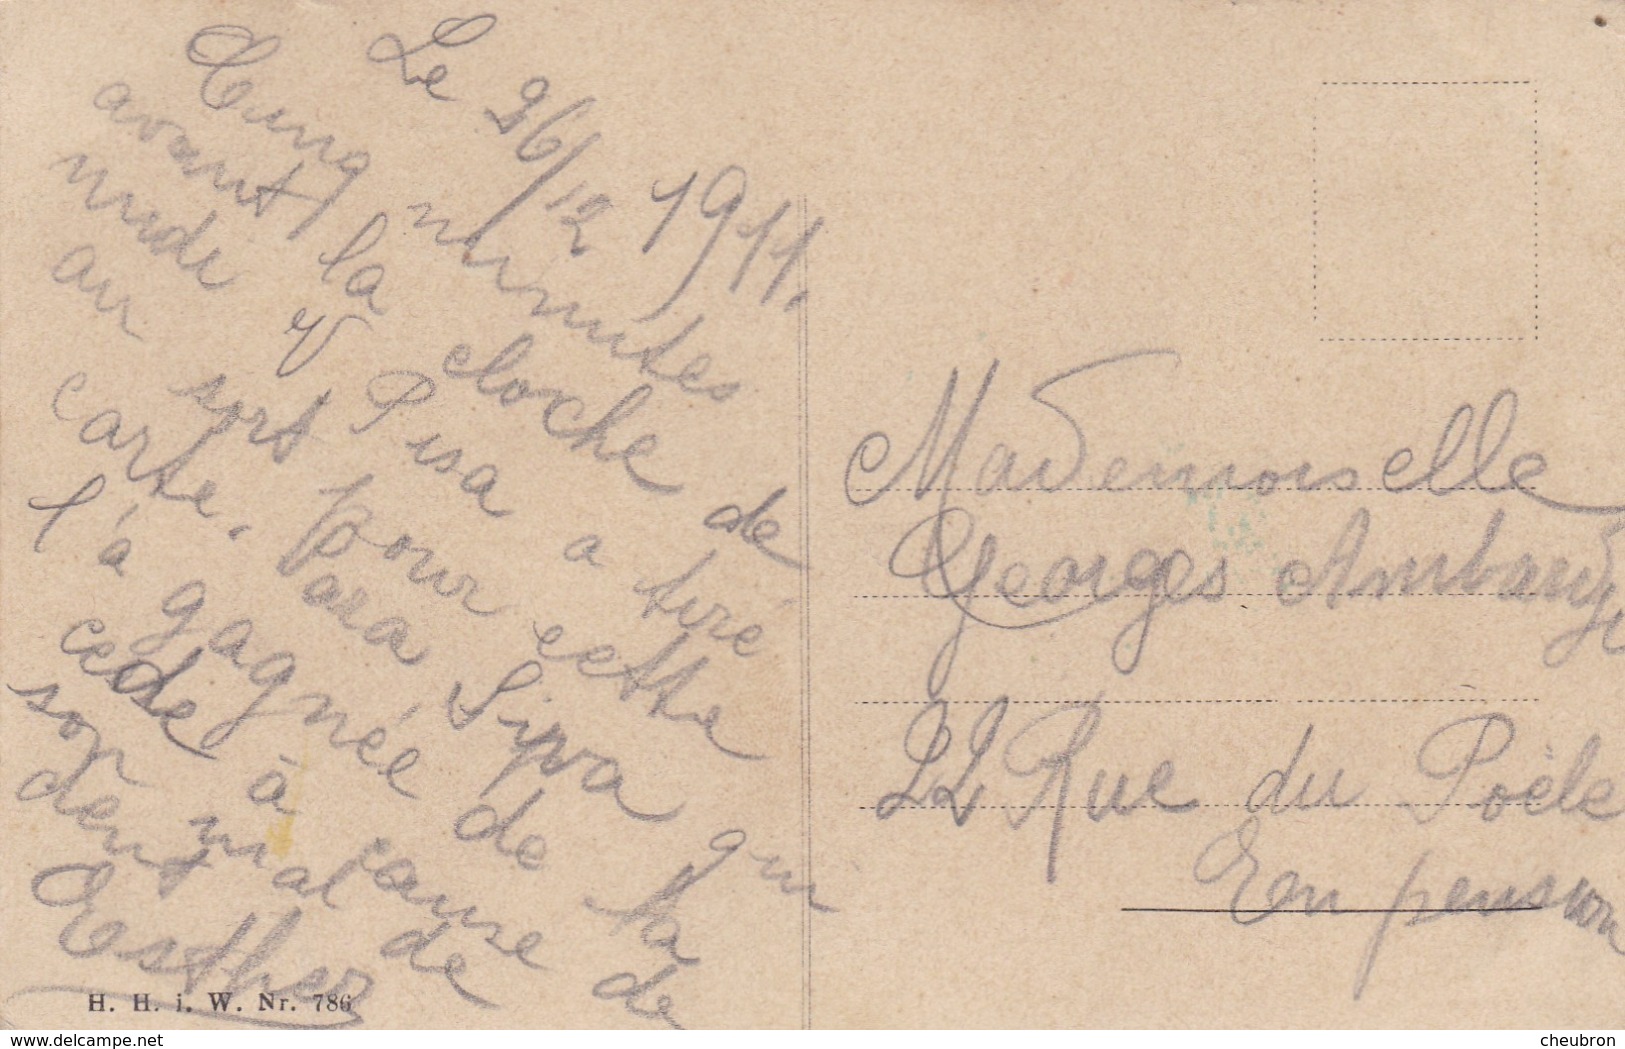 Le 26/12 1911.
Cinq minutes
avant la cloche de
midi Pisa a tiré
au sort pour cette
carte. Sipa qui
l'a gagnée de la
cede à cause de
son mal de
dent
Esther
Mademoiselle
Georges
22 Rue du Poële
En pension
H. H. i. W. Nr. 786
delcampe.net
cheubron